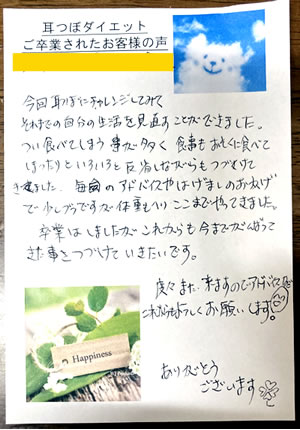 耳つぼダイエット
ご卒業されたお客様の声
今回耳つぼにチャレンジしてみて
それまでの自分の生活を見直すことができました。
つい食べてしまう事が多く 食事もおそくに食べて
しまったりといろいろと反省しながらもつづけて
きました。毎回のアドバイスやはげましのおかげ
で少しづつですが体重もへりここまでやってきました。
卒業はしましたがこれからも今までがんばって
きた事をつづけていきたいです。
度々また来ますのでアドバイス
これからもよろしくお願いします。
ありがとう
ございます
Happiness